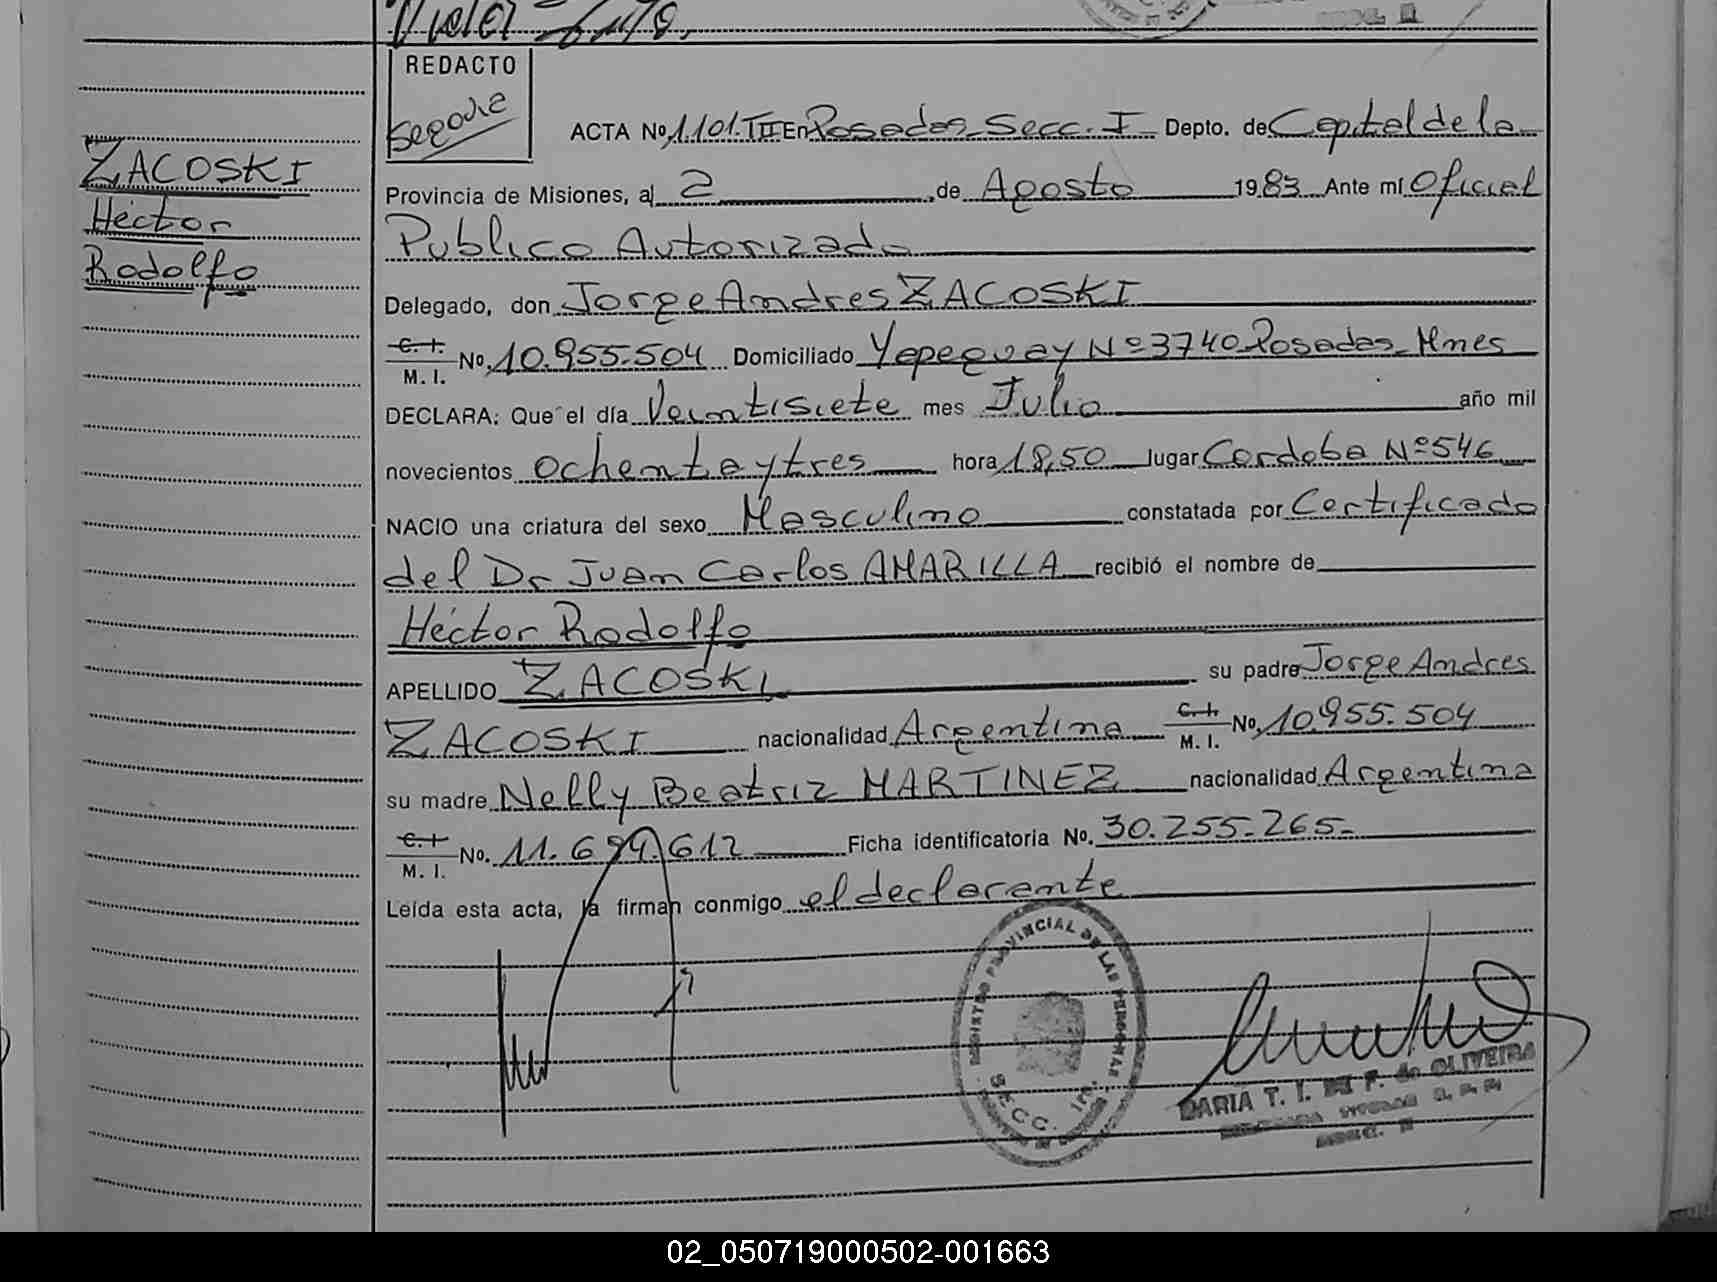 REDACTO
Segovia
ACTA No. 1101.TII En Posadas Secc. I Depto. de Capital de la
ZACOSKI
Provincia de Misiones, al 2 de Agosto 1983 Ante mí Oficial
Héctor
Publico Autorizado
Rodolfo
Delegado, don Jorge Andres ZACOSKI
C. I.
M. I. No. 10.955.504 Domiciliado Yapeguay Nº 3740 Posadas Mnes
DECLARA: Que el día Veintisiete mes Julio año mil
novecientos ochentaytres hora 18,50 lugar Cordoba Nº 546
NACIO una criatura del sexo Masculino constatada por Certificado
del Dr Juan Carlos AMARILLA recibió el nombre de
Héctor Rodolfo
APELLIDO ZACOSKI su padre Jorge Andres
ZACOSKI nacionalidad Argentina C. I. M. I. No. 10.955.504
su madre Nelly Beatriz MARTINEZ nacionalidad Argentina
C. I.
M. I. No. 11.694.612 Ficha identificatoria No. 30.255.265-
Leída esta acta, la firman conmigo el declarante
REGISTRO PROVINCIAL DE LAS PERSONAS
SECC. 1ra.
MARIA T. I. de OLIVEIRA
02_050719000502-001663